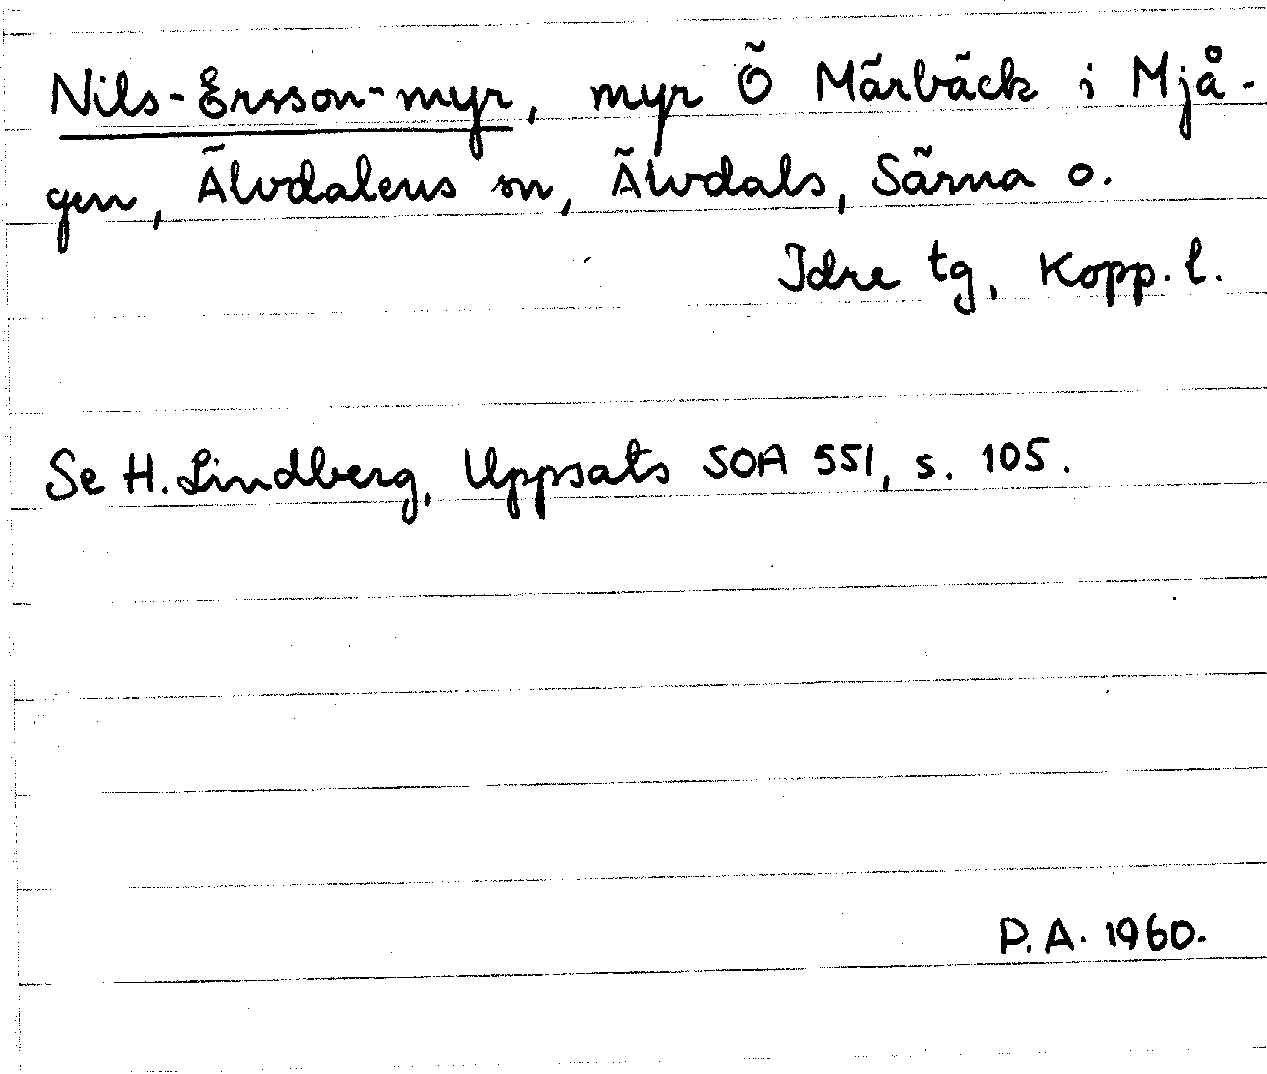 Nils-Ersson-myr, myr Ö Märbäck i Mjå-
gen, Älvdalens sn, Älvdals, Särna o.
Idre tg, Kopp. l.
Se H. Lindberg, Uppsats SOA 551, s. 105.
P.A. 1960.